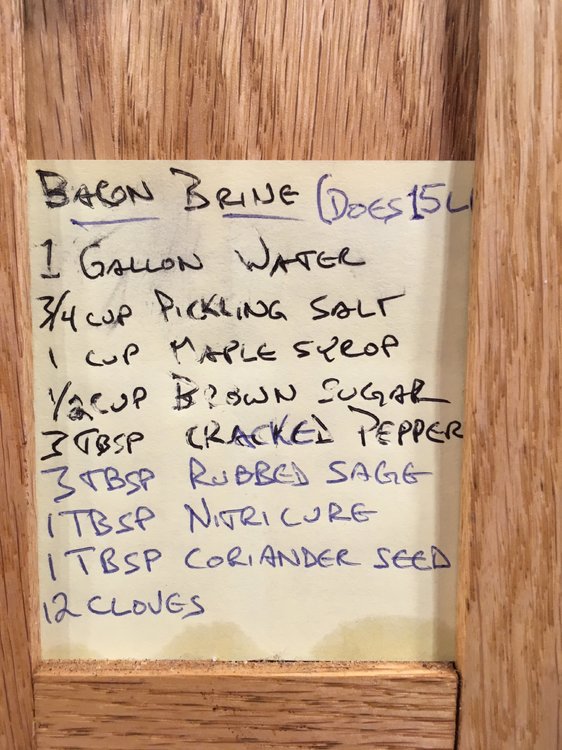 BACON BRINE (DOES 15 L
1 GALLON WATER
3/4 CUP PICKLING SALT
1 CUP MAPLE SYROP
1/2 CUP BROWN SUGAR
3 TBSP CRACKED PEPPER
3 TBSP RUBBED SAGE
1 TBSP NITRICURE
1 TBSP CORIANDER SEED
12 CLOVES